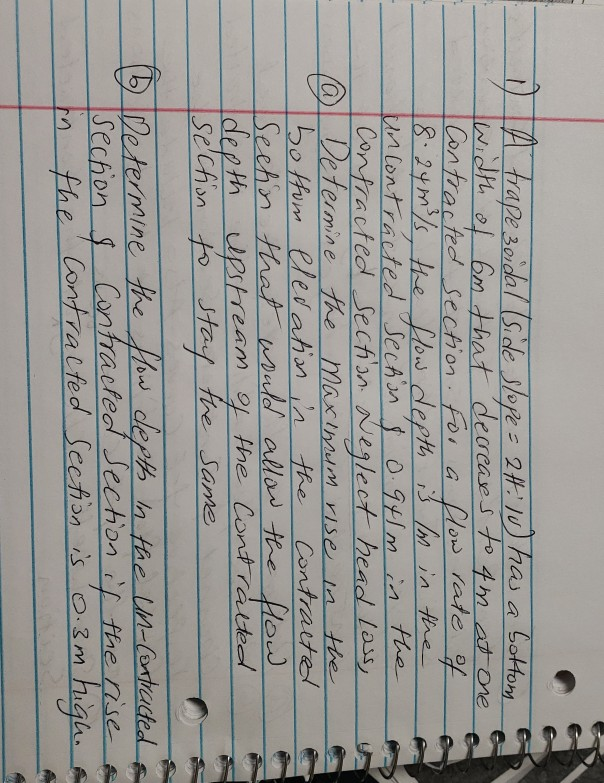 1) A trapezoidal (side slope = 2H:1V) has a bottom
width of 6m that decreases to 4m at one
contracted section. For a flow rate of
8.24m³/s, the flow depth is 1m in the
uncontracted section & 0.941m in the
contracted section. Neglect head loss,
(a) Determine the maximum rise in the
bottom elevation in the contracted
section that would allow the flow
depth upstream of the contracted
section to stay the same
(b) Determine the flow depth in the un-contracted
section & contracted section if the rise
in the contracted section is 0.3m high.